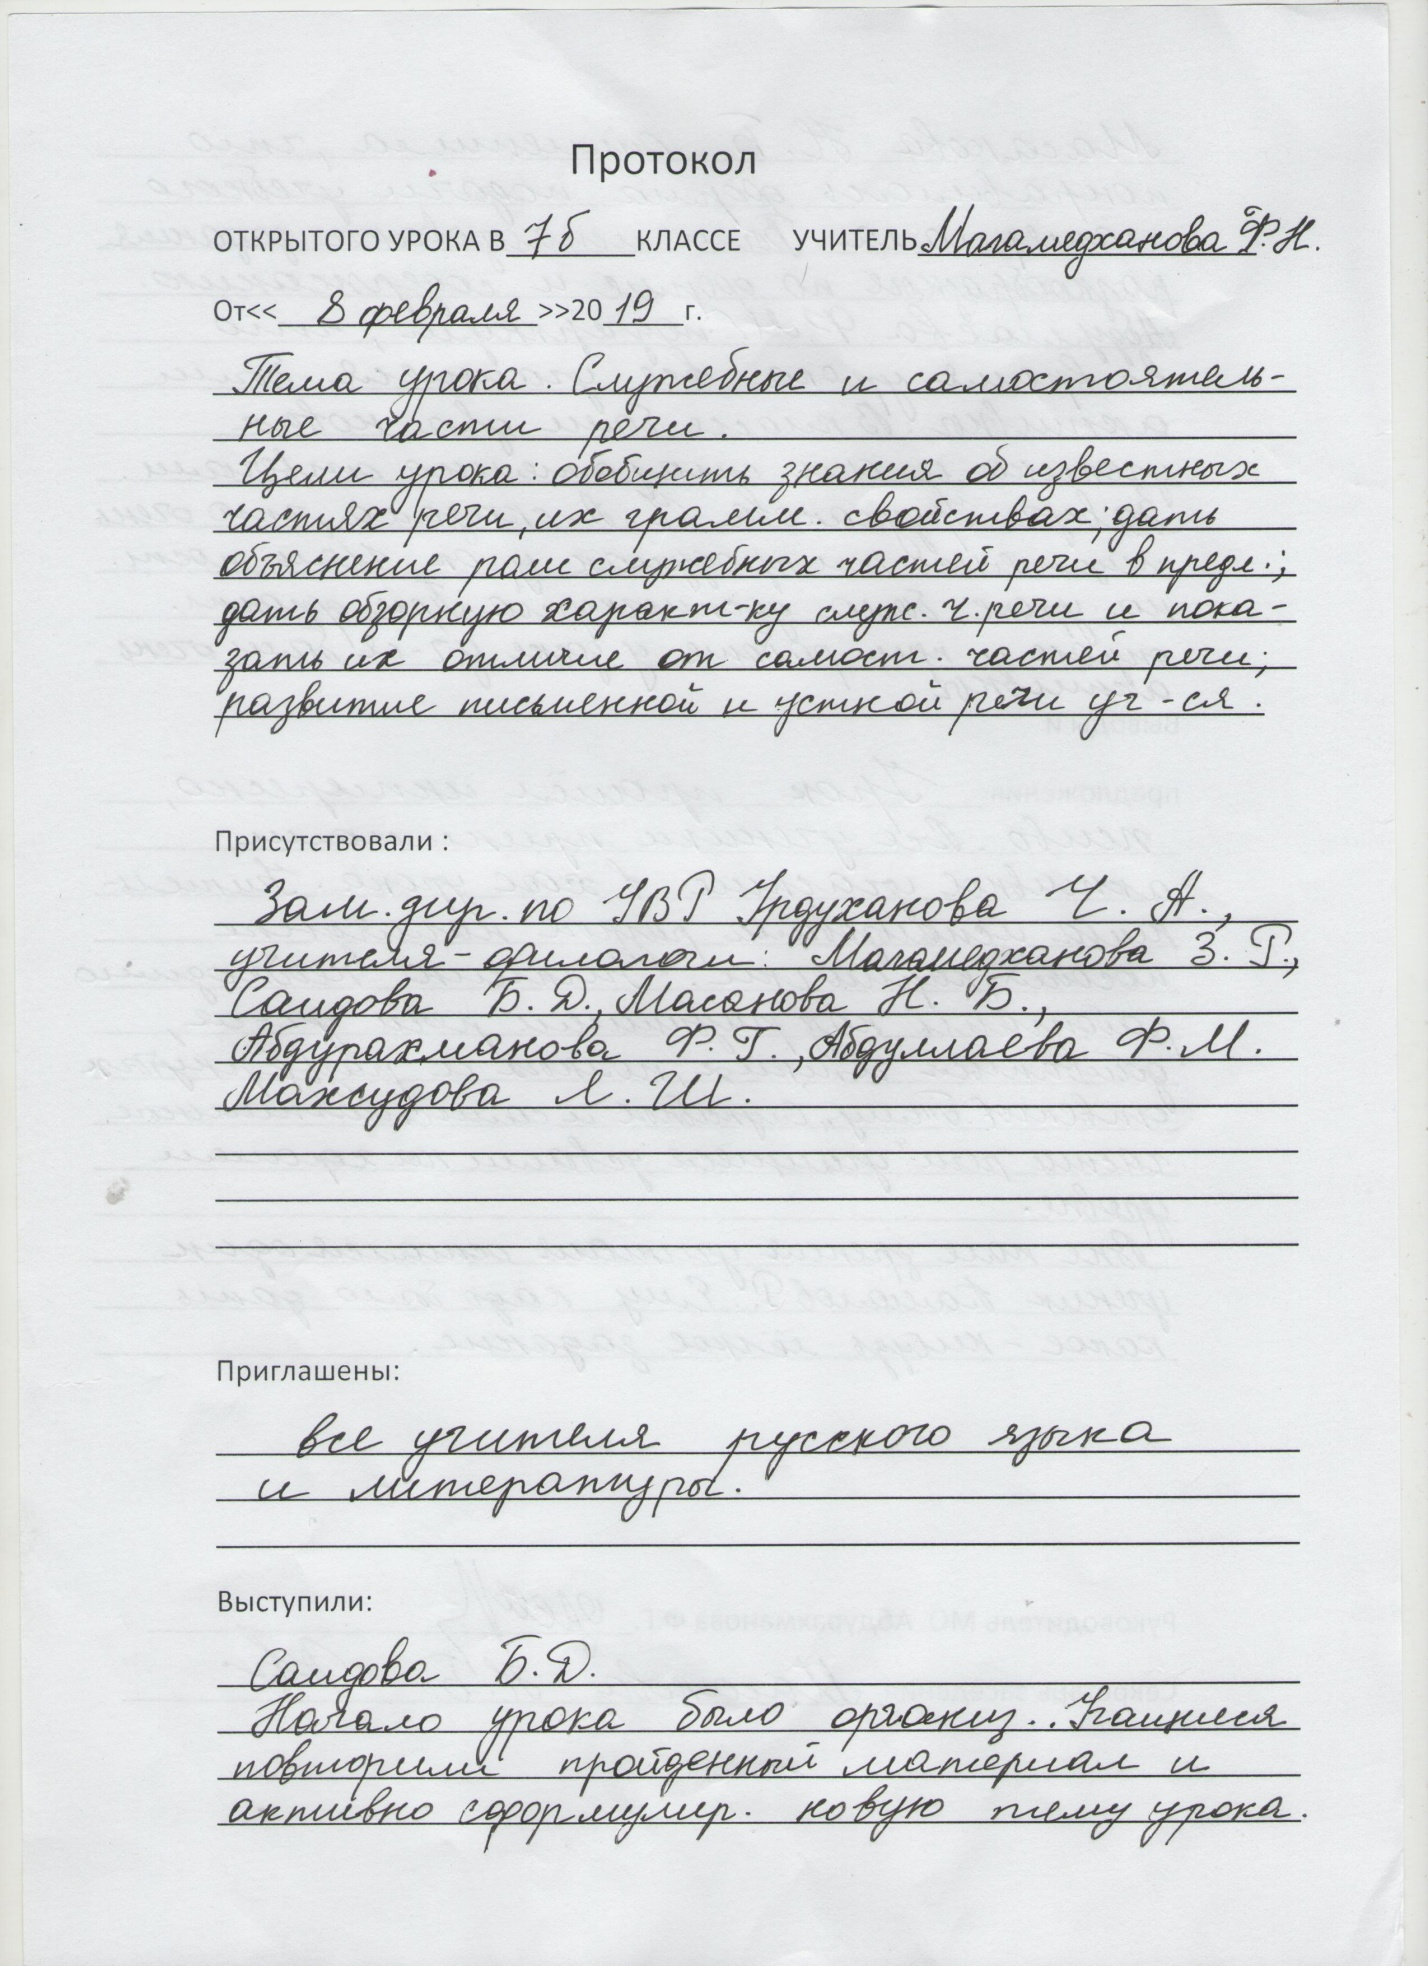 Протокол
ОТКРЫТОГО УРОКА В 7б КЛАССЕ УЧИТЕЛЬ Магамедханова Ф.Н.
От<< 8 февраля >>2019 г.
Тема урока. Служебные и самостоятель-
ные части речи.
Цели урока: обобщить знания об известных
частях речи, их грамм. свойствах; дать
объяснение роли служебных частей речи в предл.;
дать обзорную характ-ку служ. ч. речи и пока-
зать их отличие от самост. частей речи;
развитие письменной и устной речи уч-ся.
Присутствовали :
Зам. дир. по УВР Урдуханова Ч. А.,
учителя-филологи: Магамедханова З. Г.,
Саидова Б. Д., Масанова Н. Б.,
Абдурахманова Ф. Г., Абдуллаева Ф. М.
Махсудова Л. Ш.
Приглашены:
все учителя русского языка
и литературы.
Выступили:
Саидова Б. Д.
Начало урока было организ.. Учащиеся
повторили пройденный материал и
активно сформулир. новую тему урока.